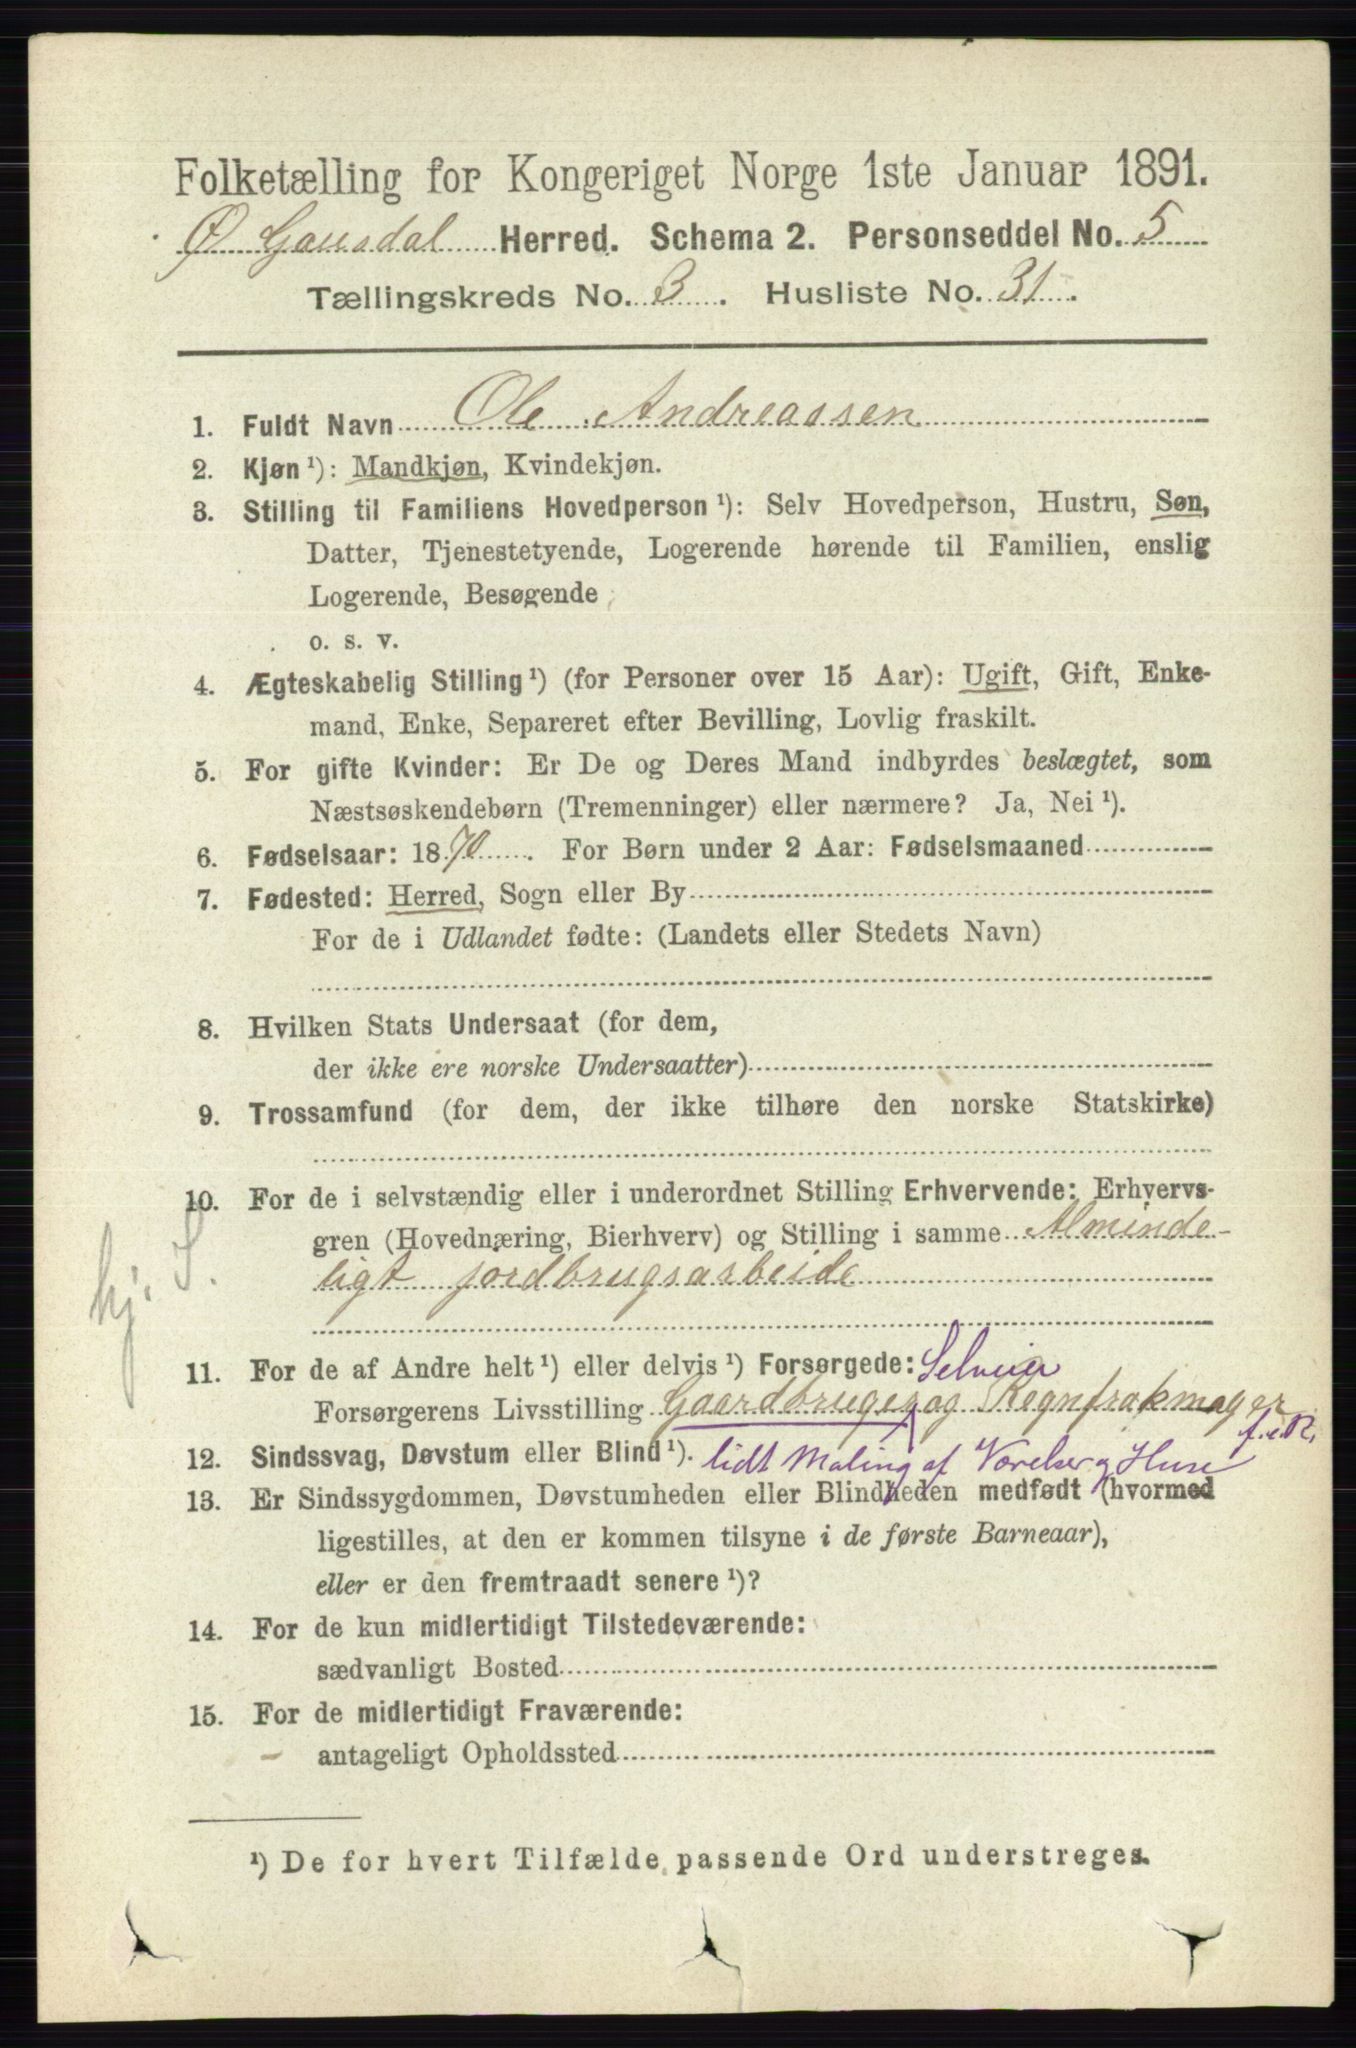 Folketælling for Kongeriget Norge 1ste Januar 1891.
Ø Gausdal Herred. Schema 2. Personseddel No. 5
Tællingskreds No. 3. Husliste No. 31.
1. Fuldt Navn Ole Andreassen
2. Kjøn ¹): Mandkjøn, Kvindekjøn.
3. Stilling til Familiens Hovedperson ¹): Selv Hovedperson, Hustru, Søn,
Datter, Tjenestetyende, Logerende hørende til Familien, enslig
Logerende, Besøgende
o. s. v.
4. Ægteskabelig Stilling ¹) (for Personer over 15 Aar): Ugift, Gift, Enke-
mand, Enke, Separeret efter Bevilling, Lovlig fraskilt.
5. For gifte Kvinder: Er De og Deres Mand indbyrdes beslægtet, som
Næstsøskendebørn (Tremenninger) eller nærmere? Ja, Nei ¹).
6. Fødselsaar: 1870. For Børn under 2 Aar: Fødselsmaaned
7. Fødested: Herred, Sogn eller By
For de i Udlandet fødte: (Landets eller Stedets Navn)
8. Hvilken Stats Undersaat (for dem,
der ikke ere norske Undersaatter)
9. Trossamfund (for dem, der ikke tilhøre den norske Statskirke)
10. For de i selvstændig eller i underordnet Stilling Erhvervende: Erhvervs-
gren (Hovednæring, Bierhverv) og Stilling i samme Alminde-
ligt jordbrugsarbeide
hj. S.
11. For de af Andre helt ¹) eller delvis ¹) Forsørgede: Selveier
Forsørgerens Livsstilling Gaardbruger og Regnfrakmager
f.e.R.
12. Sindssvag, Døvstum eller Blind ¹). lidt Maling af Værelser og Huse
13. Er Sindssygdommen, Døvstumheden eller Blindheden medfødt (hvormed
ligestilles, at den er kommen tilsyne i de første Barneaar),
eller er den fremtraadt senere ¹)?
14. For de kun midlertidigt Tilstedeværende:
sædvanligt Bosted
15. For de midlertidigt Fraværende:
antageligt Opholdssted
¹) De for hvert Tilfælde passende Ord understreges.